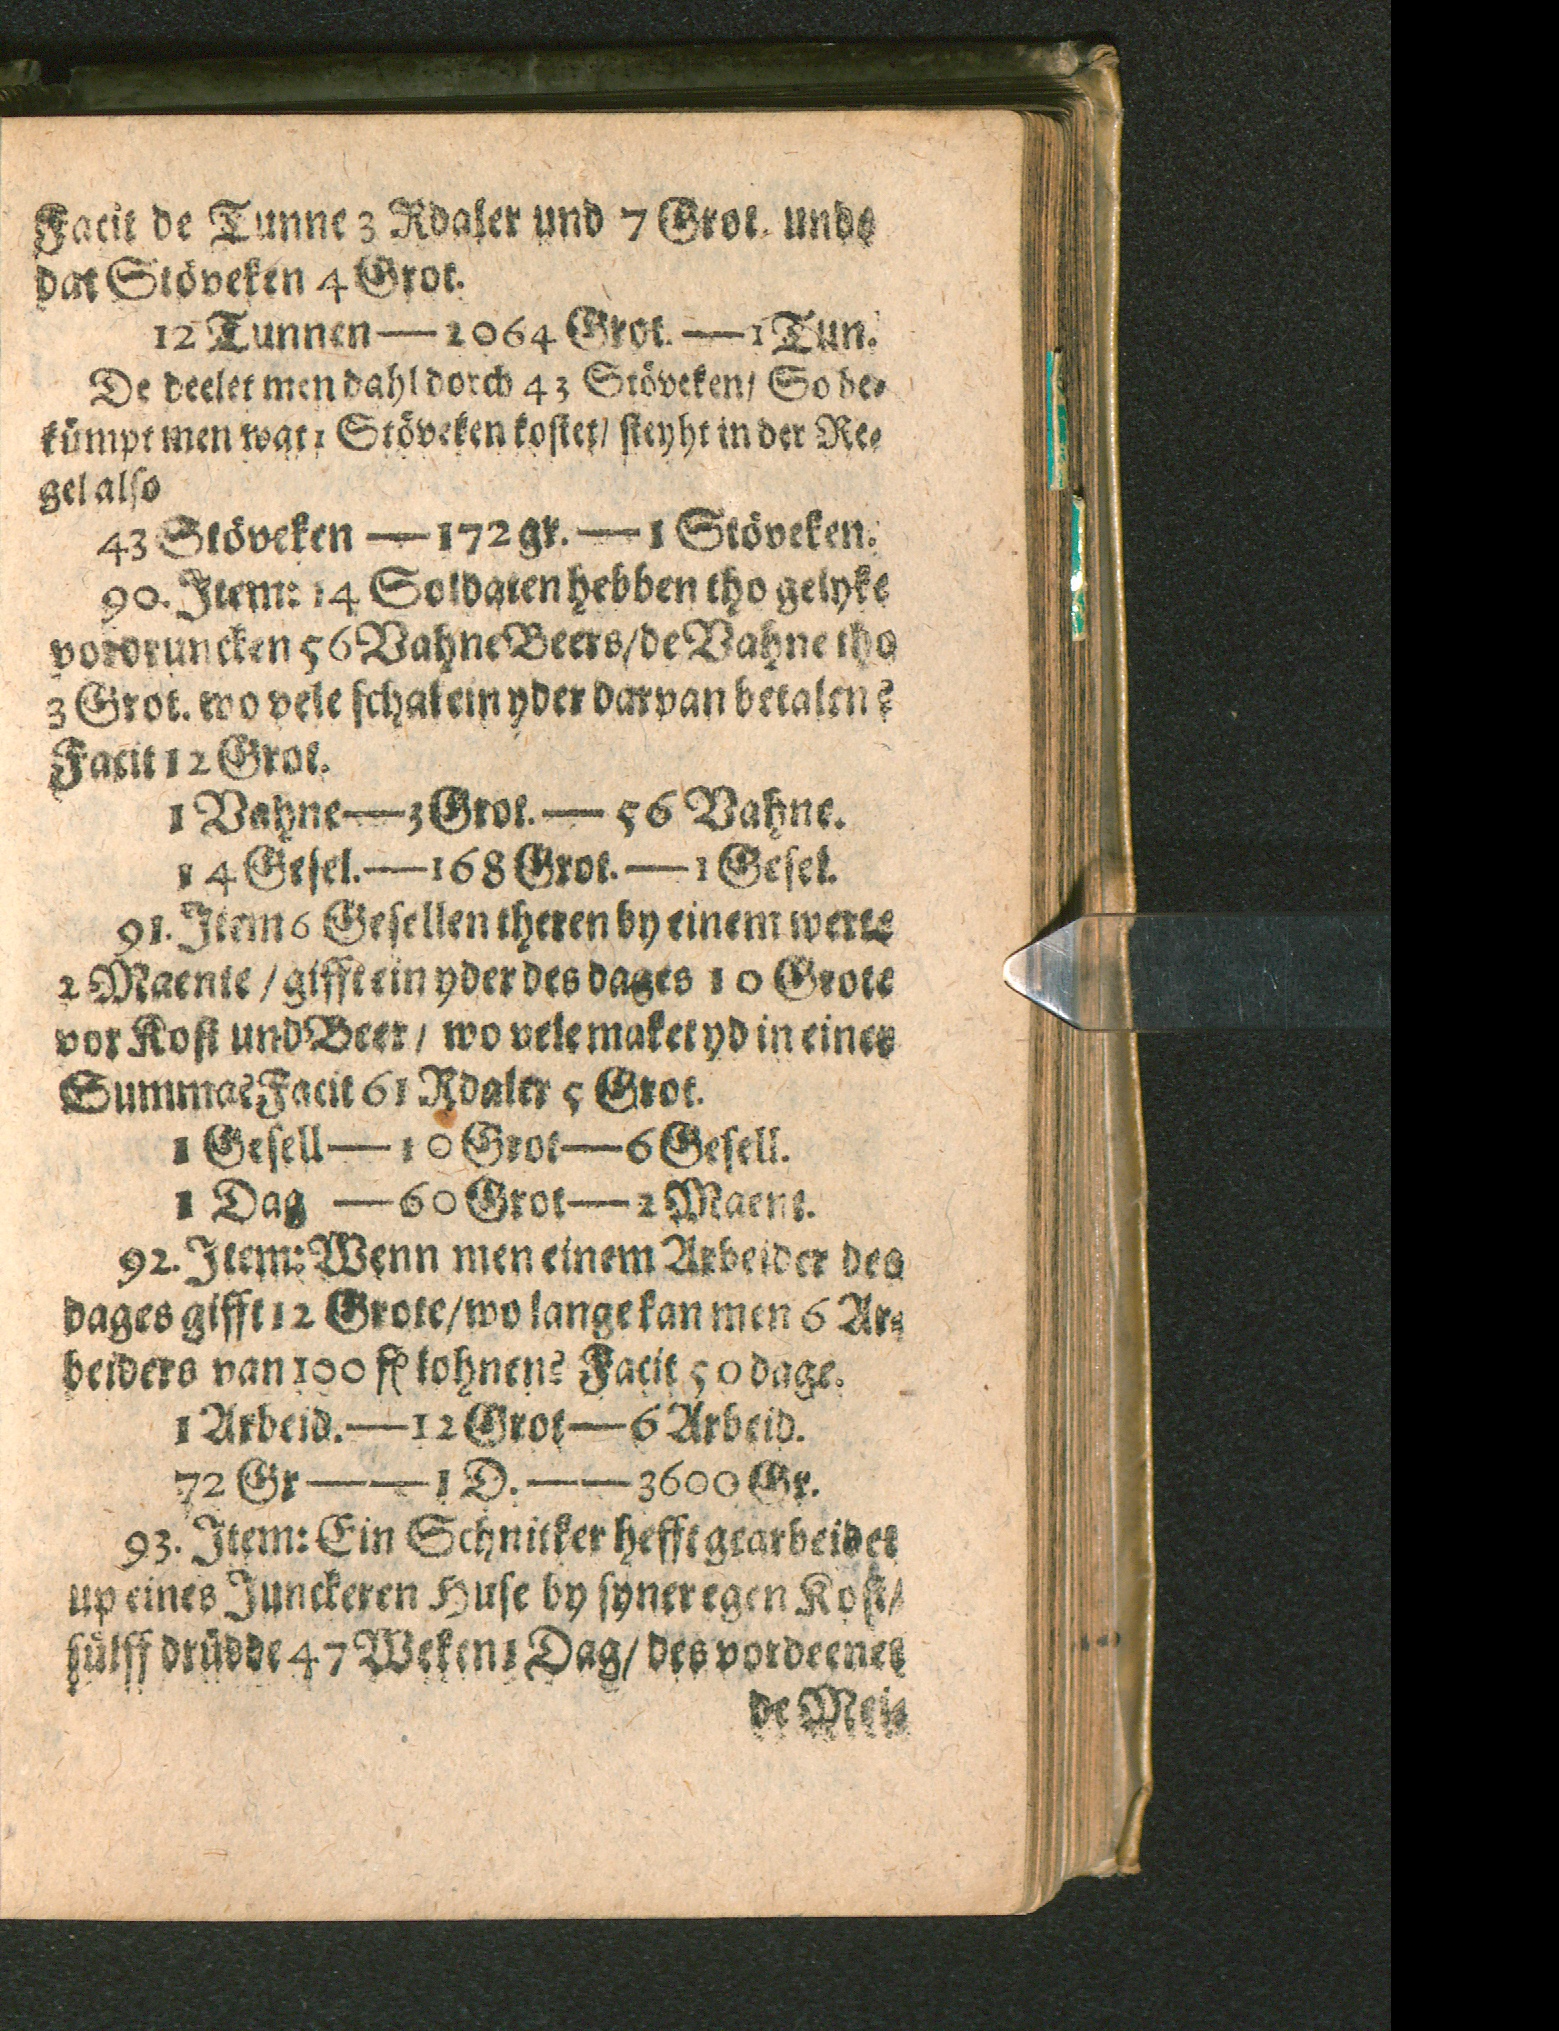 Facit de Tunne 3 Rdaler und 7 Grot. unde
dat Stöveken 4 Grot.
12 Tunnen — 2064 Grot. — 1 Tun.
De deelet men dahl dorch 43 Stöveken/ So be-
kümpt men wat 1 Stöveken kostet/ steyht in der Re-
gel also
43 Stöveken — 172 gr. — 1 Stöveken.
90. Item: 14 Soldaten hebben tho gelyke
vordruncken 56 Vahne Beers/ de Vahne tho
3 Grot. wo vele schal ein yder darvan betalen?
Facit 12 Grot.
1 Vahne — 3 Grot. — 56 Vahne.
14 Gesel. — 168 Grot. — 1 Gesel.
91. Item 6 Gesellen theren by einem werte
2 Maente / gifft ein yder des dages 10 Grote
vor Kost und Beer/ wo vele maket yd in einer
Summa? Facit 61 Rdaler 5 Grot.
1 Gesell — 10 Grot — 6 Gesell.
1 Dag — 60 Grot — 2 Maent.
92. Item: Wenn men einem Arbeider des
dages gifft 12 Grote/ wo lange kan men 6 Ar-
beiders van 100 fl lohnen? Facit 50 dage.
1 Arbeid. — 12 Grot — 6 Arbeid.
72 Gr — — 1 D. — — 3600 Gr.
93. Item: Ein Schnitker hefft gearbeidet
up eines Junckeren Huse by syner egen Kost/
sülff drüdde 47 Weken 1 Dag/ des vordeenet
de Mei-